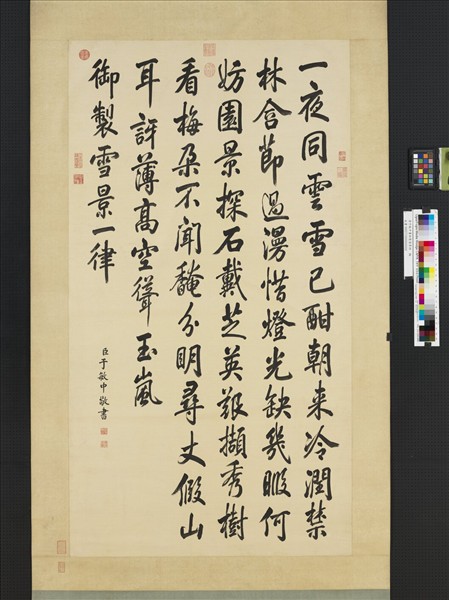 一夜同雲雪已酣朝来冷潤禁
林含節過漫惜燈光缺幾暇何
妨園景探石戴芝英艱擷秀樹
看梅朶不聞馣分明尋丈假山
耳訝薄高空聳玉嵐
御製雪景一律
臣于敏中敬書